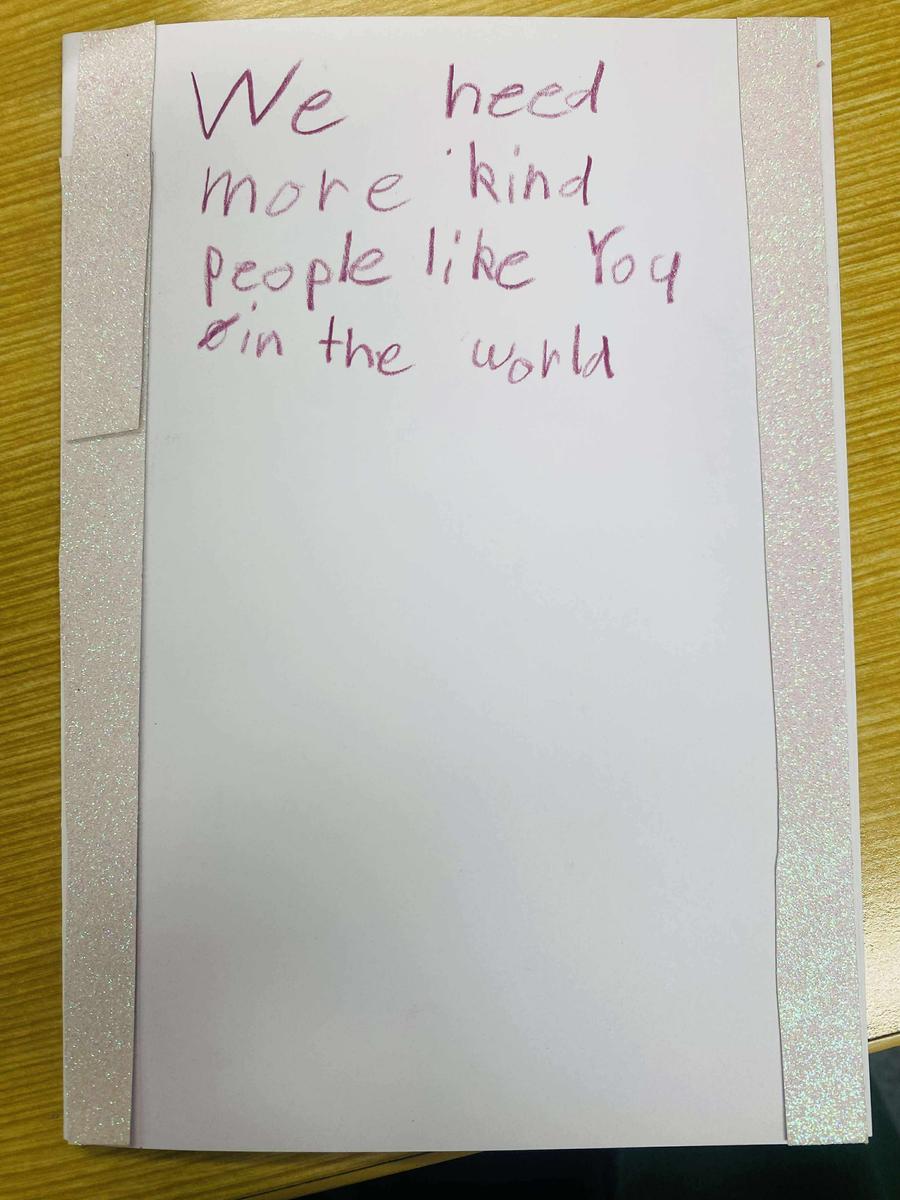 We need
more kind
people like You
in the world